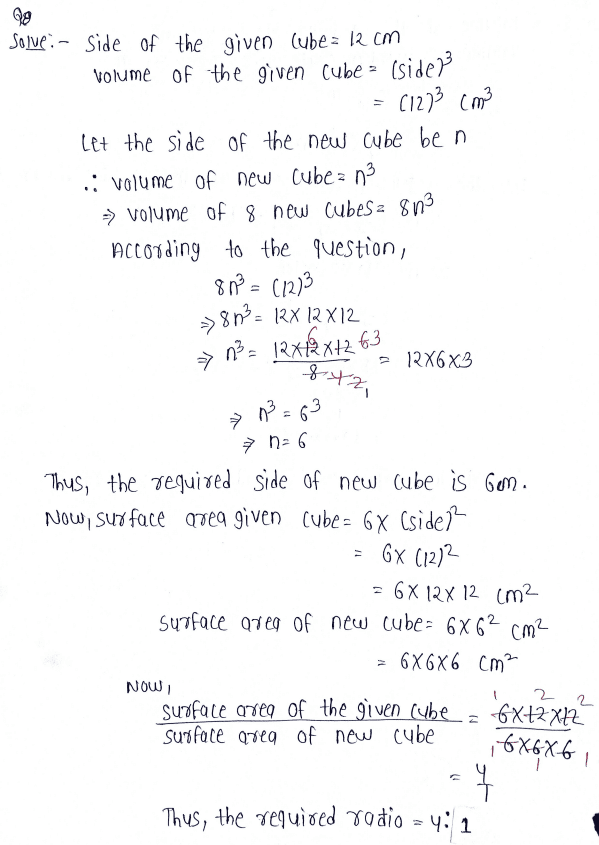 Q8
Solve:- Side of the given cube = 12 cm
volume of the given cube = (side)³
= (12)³ cm³
Let the side of the new cube be n
∴ volume of new cube = n³
⇒ volume of 8 new cubes = 8n³
According to the question,
8n³ = (12)³
⇒ 8n³ = 12 X 12 X 12
⇒ n³ = 12 X 12 X 12 / 8 = 12X6X3
6 6 3
4 2 1
⇒ n³ = 6³
⇒ n = 6
Thus, the required side of new cube is 6cm.
Now, surface area given cube = 6X (side)²
= 6X (12)²
= 6 X 12 X 12 cm²
surface area of new cube = 6X6² cm²
= 6X6X6 cm²
Now,
surface area of the given cube / surface area of new cube = 6X12X12 / 6X6X6
1 2 2
1 1 1
= 4/1
Thus, the required radio = 4:1